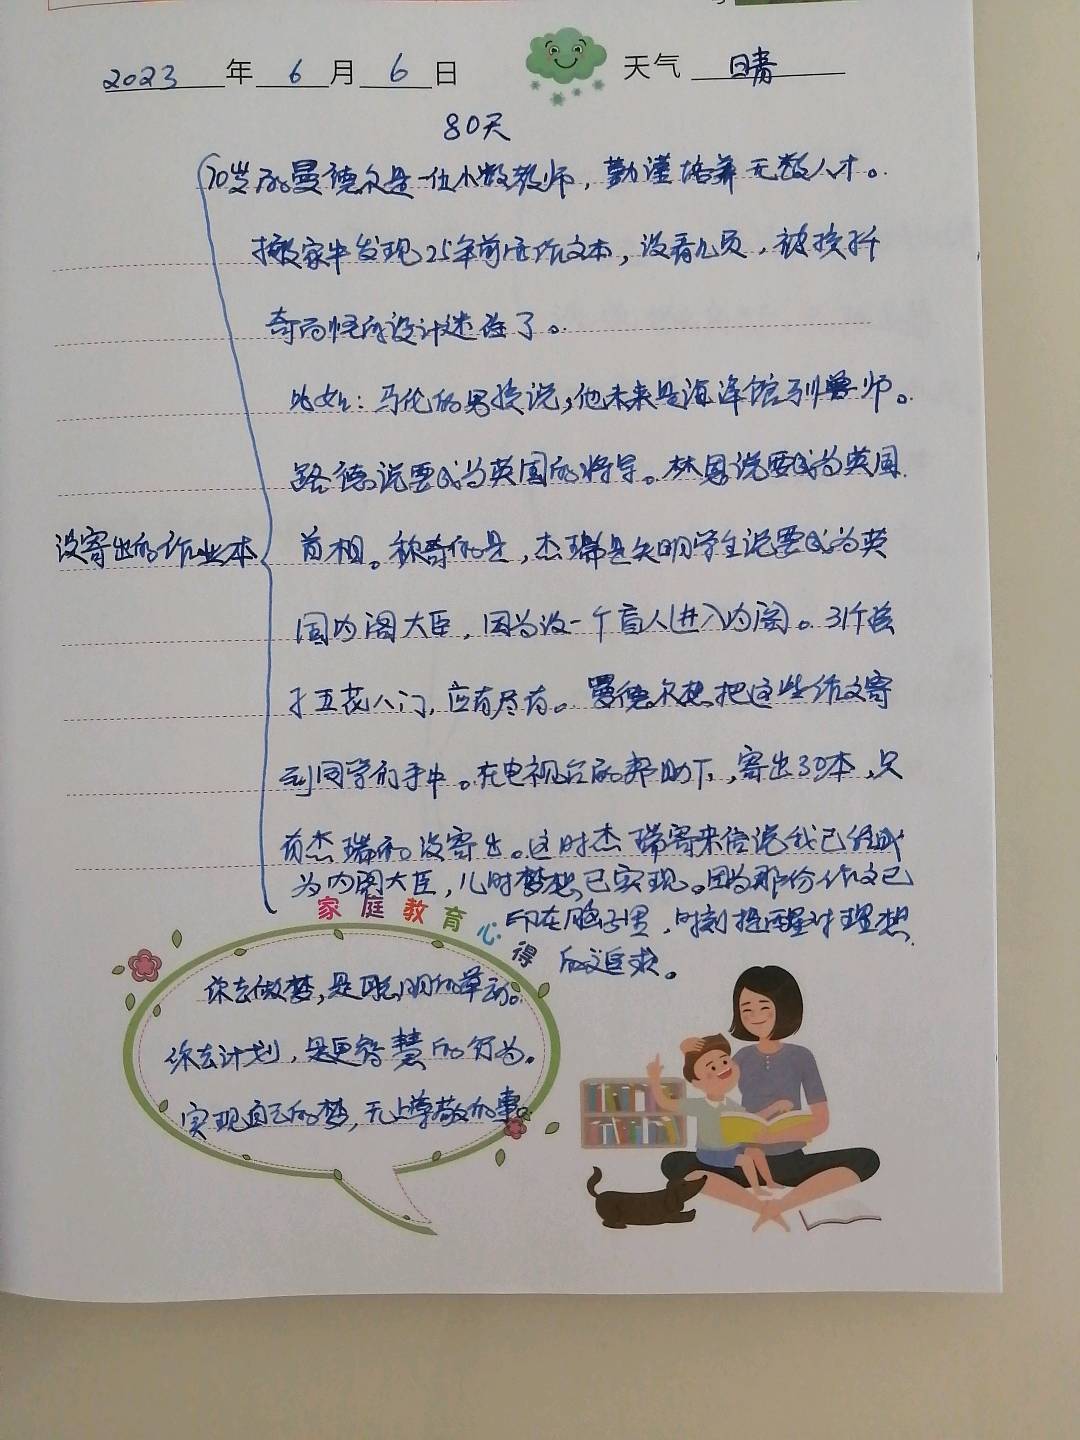 2023年6月6日 天气 晴
80天
70岁的曼德尔是一位小数教师，勤谨培养无数人才。
搬家中发现25年前的作文本，没看几页，被孩子千
奇百怪的设计迷住了。
比如：马伦的男孩说，他未来是海洋馆驯兽师。
路德说要成为英国的将军。林恩说要成为英国
首相。称奇的是，杰瑞是失明学生说要成为英
国内阁大臣，因为没一个盲人进入内阁。31个孩
子五花八门，应有尽有。曼德尔想把这些作文寄
到同学们手中。在电视台的帮助下，寄出30本，只
没寄出的作业本
有杰瑞的没寄出。这时杰瑞寄来信说我已经成
为内阁大臣，儿时梦想已实现。因为那份作文已
印在脑子里，时刻提醒对理想
的追求。
家庭教育心得
你去做梦，是聪明的举动。
你去计划，是更智慧的行为。
实现自己的梦，无上尊敬的事。